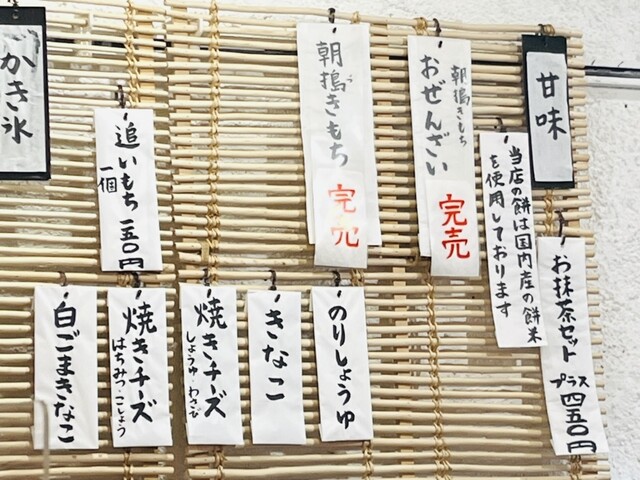 甘味
当店の餅は国内産の餅米
を使用しております
お抹茶セット
プラス四五〇円
朝搗きもち
おぜんざい
完売
朝搗きもち
完売
のりしょうゆ
きなこ
焼きチーズ
しょうゆ・わさび
焼きチーズ
はちみつ・こしょう
白ごまきなこ
追いもち一五〇円
一個
かき氷